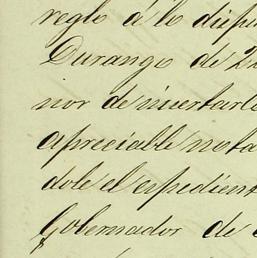 reglo á lo dispu
Durango de 22
nor de incertarlo
apreciable nota
dole el espedient
Gobernador de